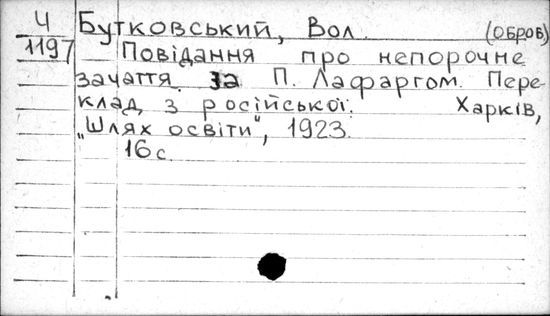 Ч Бутковський, Вол. (ОБРОБ)
1197 Повідання про непорочне
зачаття. За П. Лафаргом. Пере-
клад з російської. Харків,
„Шлях освіти", 1923.
16 с.